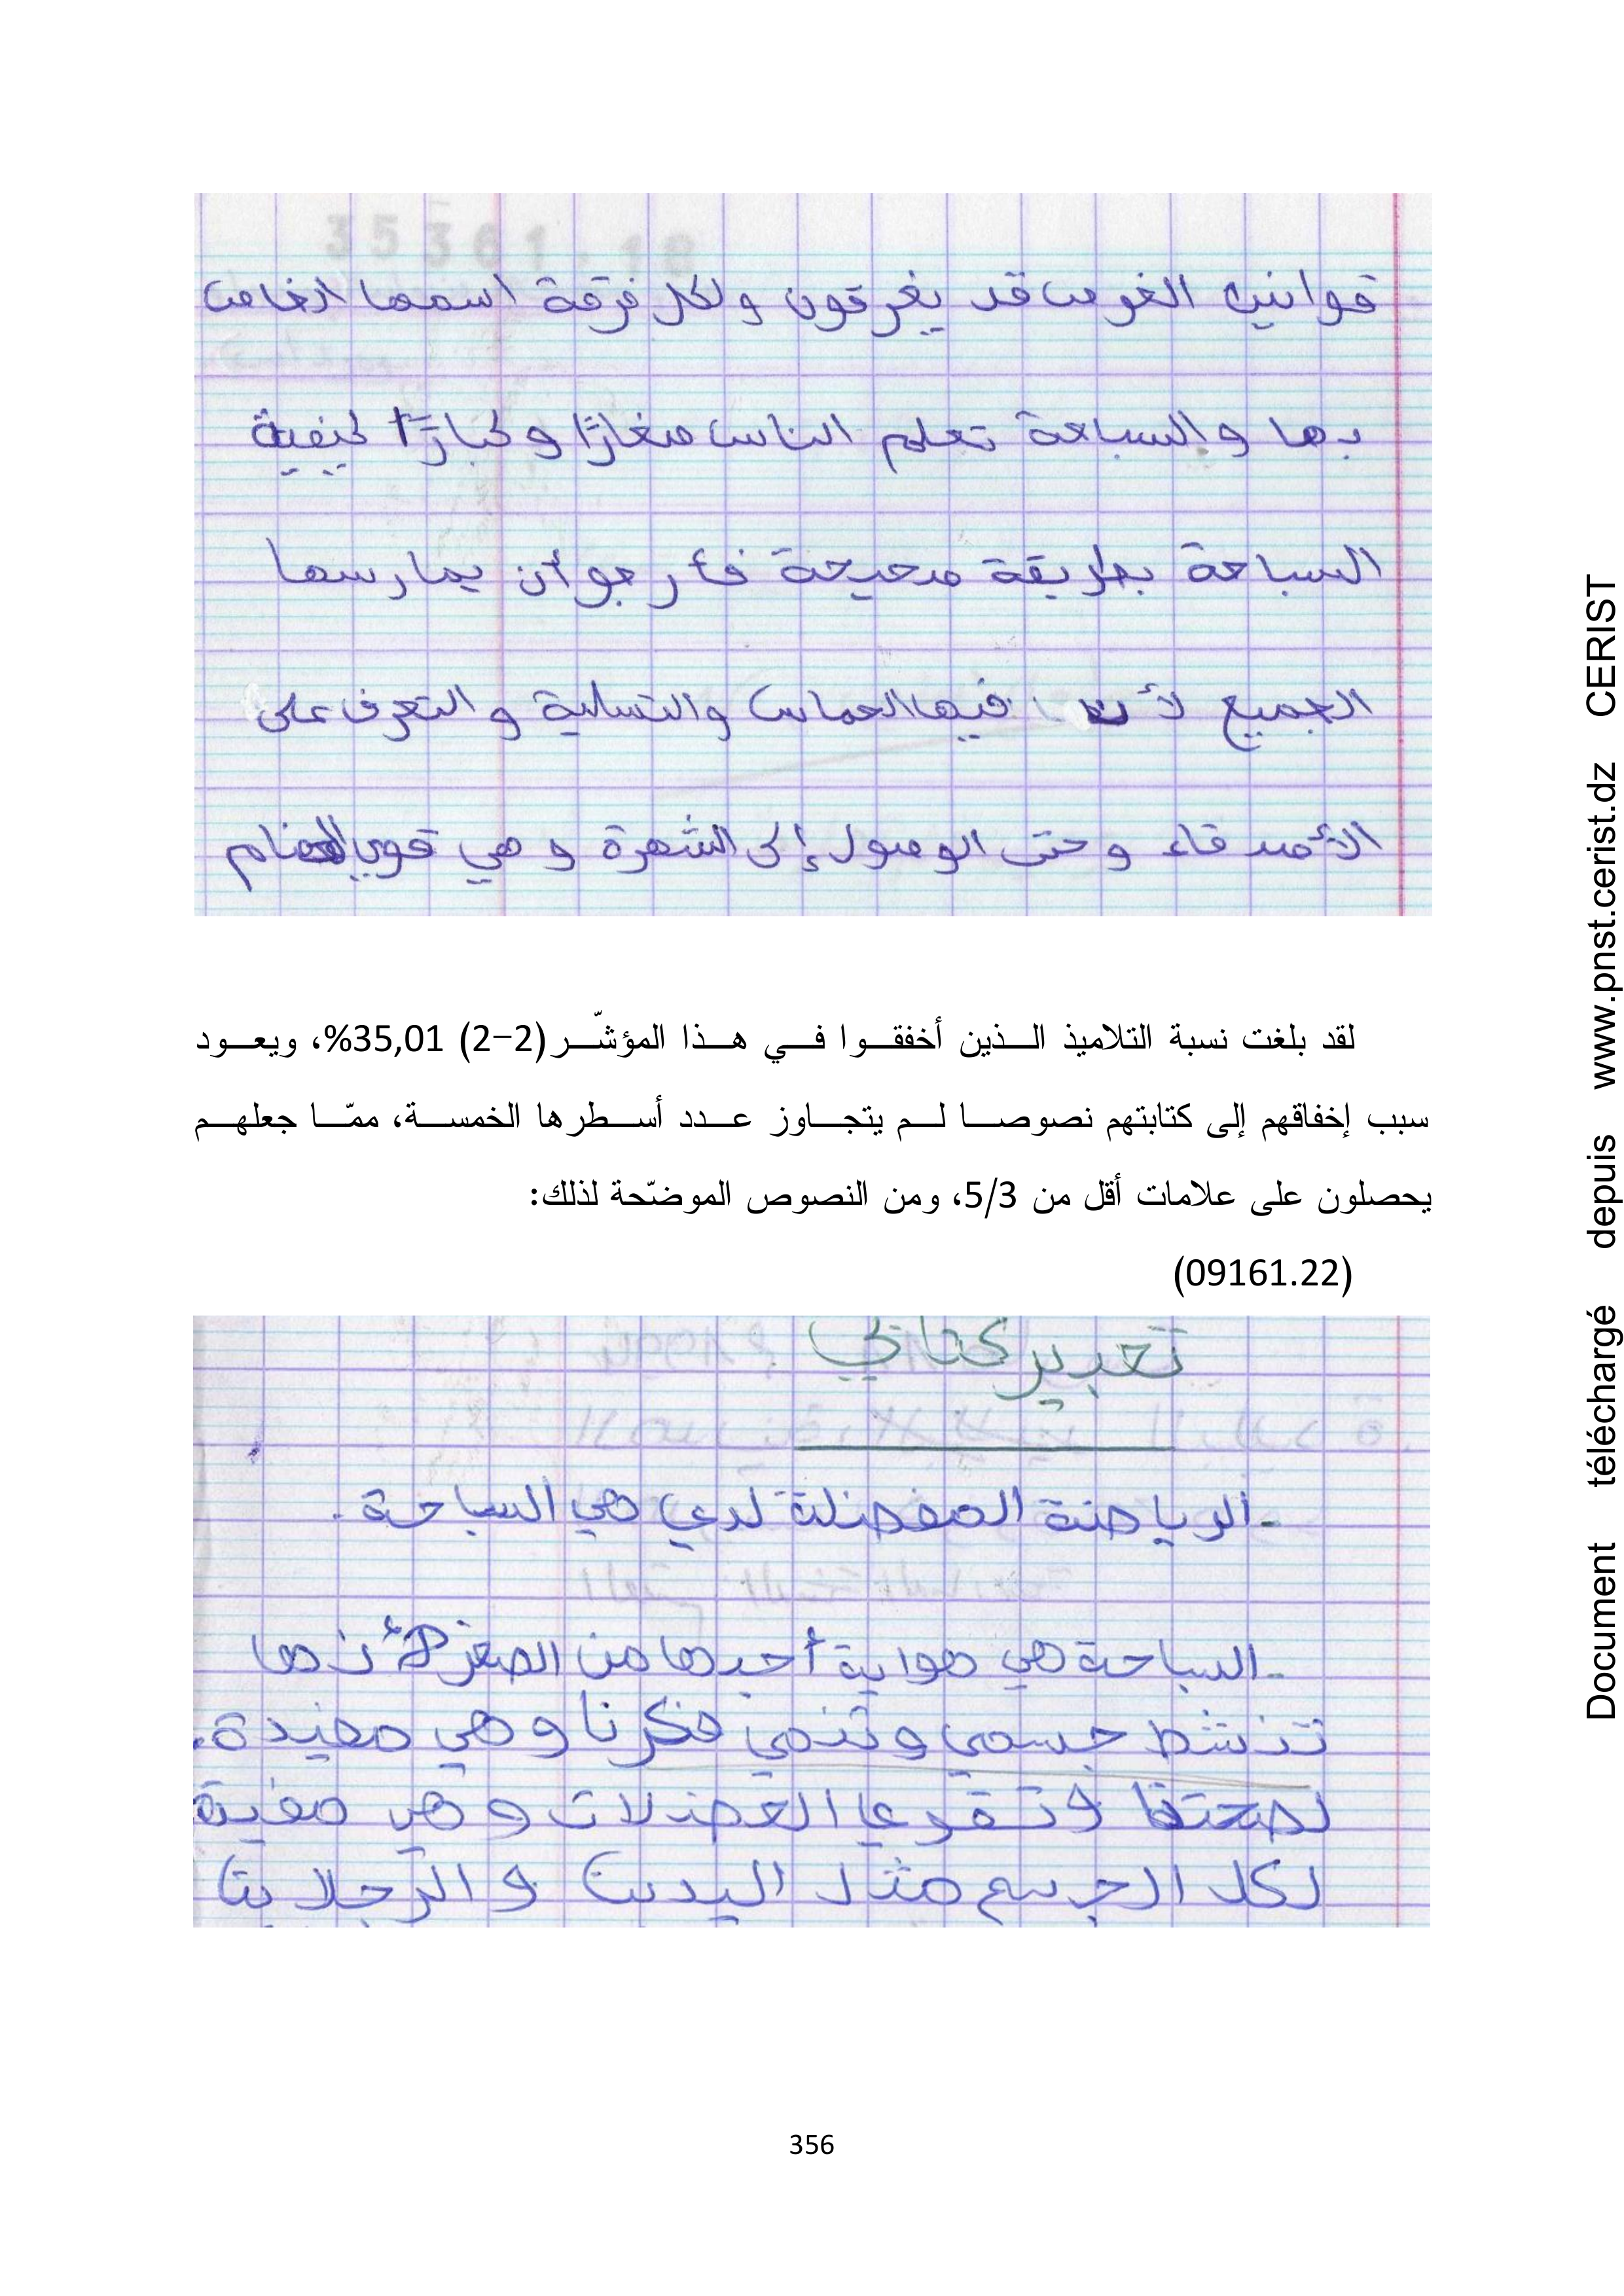 35361.18
قوانين الغوص قد يغرقون ولكل فرقة اسمها الخاص
بها والسباحة تعلم الناس صغارًا وكبارًا كيفية
السباحة بطريقة صحيحة فأرجو أن يمارسها
الجميع لأن فيها الحماس والتسلية و التعرف على
الأصدقاء وحتى الوصول إلى الشهرة و هي تقوي العضام
لقد بلغت نسبة التلاميذ الذين أخفقوا في هذا المؤشّر(2-2) 35,01%، ويعود
سبب إخفاقهم إلى كتابتهم نصوصا لم يتجاوز عدد أسطرها الخمسة، ممّا جعلهم
يحصلون على علامات أقل من 5/3، ومن النصوص الموضّحة لذلك:
(09161.22)
تعبير كتابي
-الرياضة المفضلة لدي هي السباحة.
-السباحة هي هواية أجدها من الصغر لأنها
تنشط جسمي وتنمي فكرنا وهي مفيدة.
لصحتنا وتقوي العضلات وهي مفيدة
لكل الجسم مثل اليدين و الرجلين
356
Document téléchargé depuis www.pnst.cerist.dz CERIST